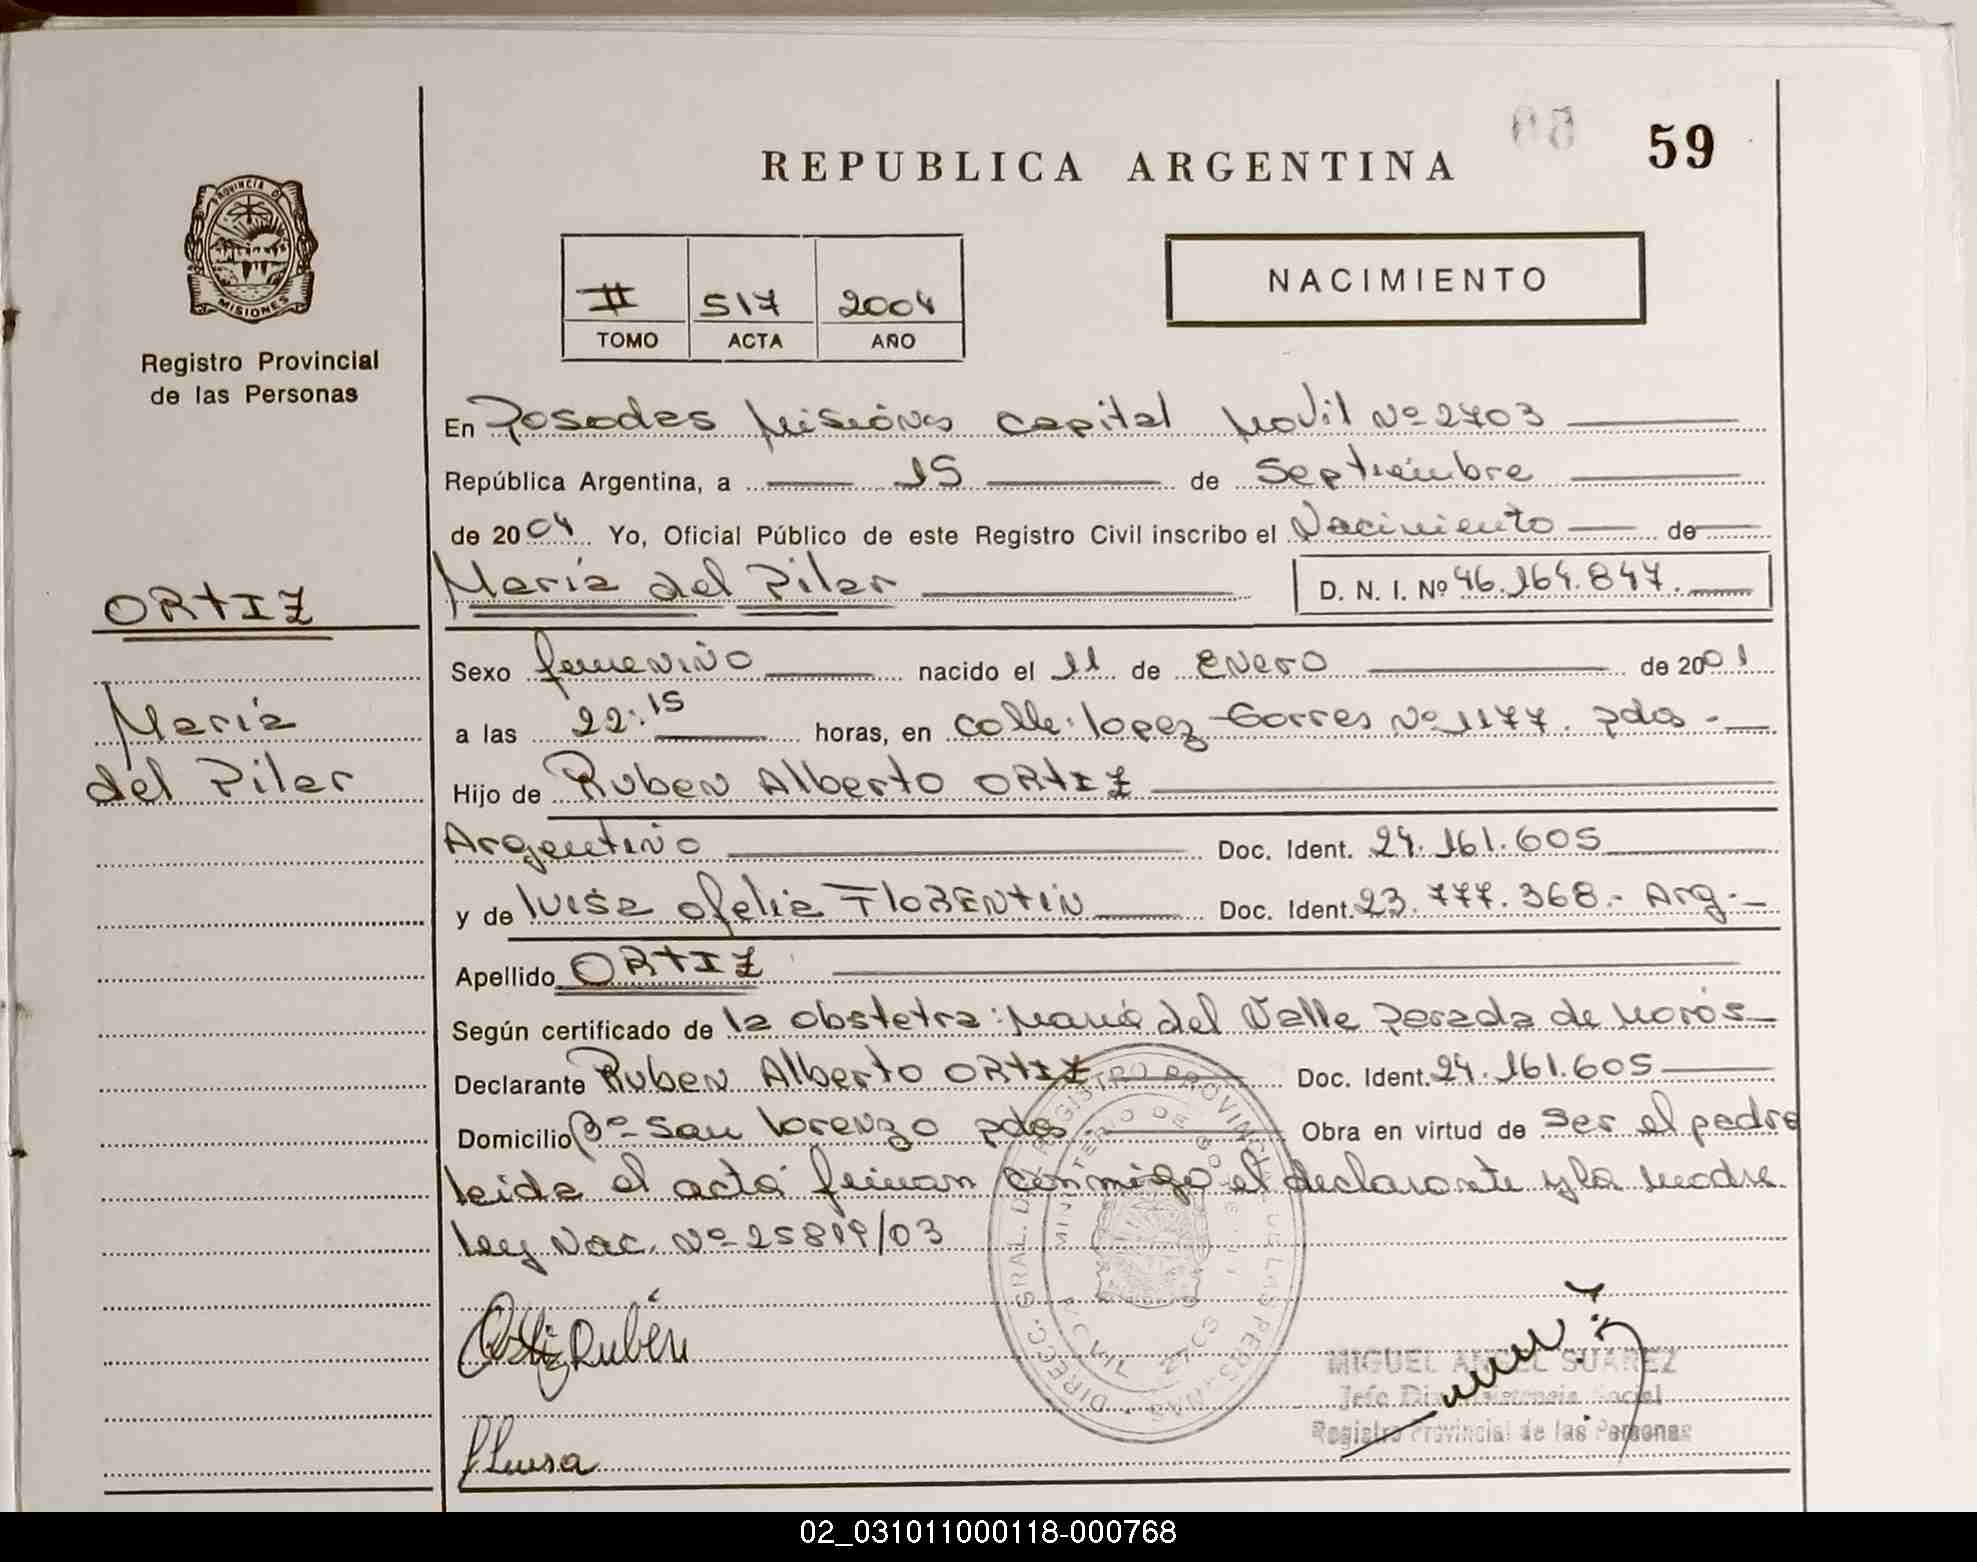 REPUBLICA ARGENTINA
59
PROVINCIA DE
MISIONES
Registro Provincial
de las Personas
NACIMIENTO
II 517 2004
TOMO ACTA AÑO
En Posadas Misiones Capital Movil Nº 2703
República Argentina, a 15 de Septiembre
de 2004 Yo, Oficial Público de este Registro Civil inscribo el Nacimiento de
ORTIZ
María del Pilar D. N. I. Nº 46.164.847.
Sexo femenino nacido el 11 de Enero de 2001
María
del Pilar
a las 22:15 horas, en calle: lopez Torres Nº 1177. pdas.
Hijo de Ruben Alberto ORTIZ
Argentino Doc. Ident. 24.161.605
y de luisa ofelia FloRENtIN Doc. Ident. 23.777.368.- Arg.-
Apellido ORTIZ
Según certificado de la obstetra: María del Valle Posada de Morós
Declarante Ruben Alberto ORTIZ Doc. Ident. 24.161.605
Domicilio Bº San lorenzo pdas Obra en virtud de ser el padre
leida el acta firman conmigo el declarante y la madre
ley Nac. Nº 25819/03
Ortiz Rubén
Luisa
DIREC. GRAL. DEL REGISTRO PROVINCIAL DE LAS PERSONAS
MINISTERIO DE GOBIERNO
MOVIL 2703
MIGUEL ANGEL SUAREZ
Jefe Asistencia Social
Registro Provincial de las Personas
02_031011000118-000768